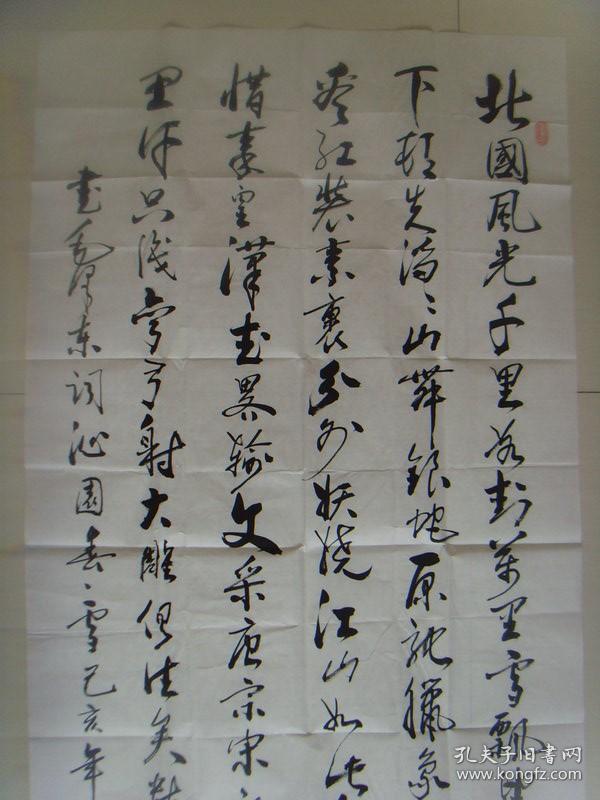 北國風光千里冰封萬里雪飄
下頓失滔滔山舞銀蛇原馳臘象
看紅裝素裹分外妖嬈江山如此
惜秦皇漢武畧輸文采唐宗宋
思汗只识彎弓射大雕俱往矣數
書毛泽东词沁園春·雪己亥年
孔夫子旧书网
www.kongfz.com